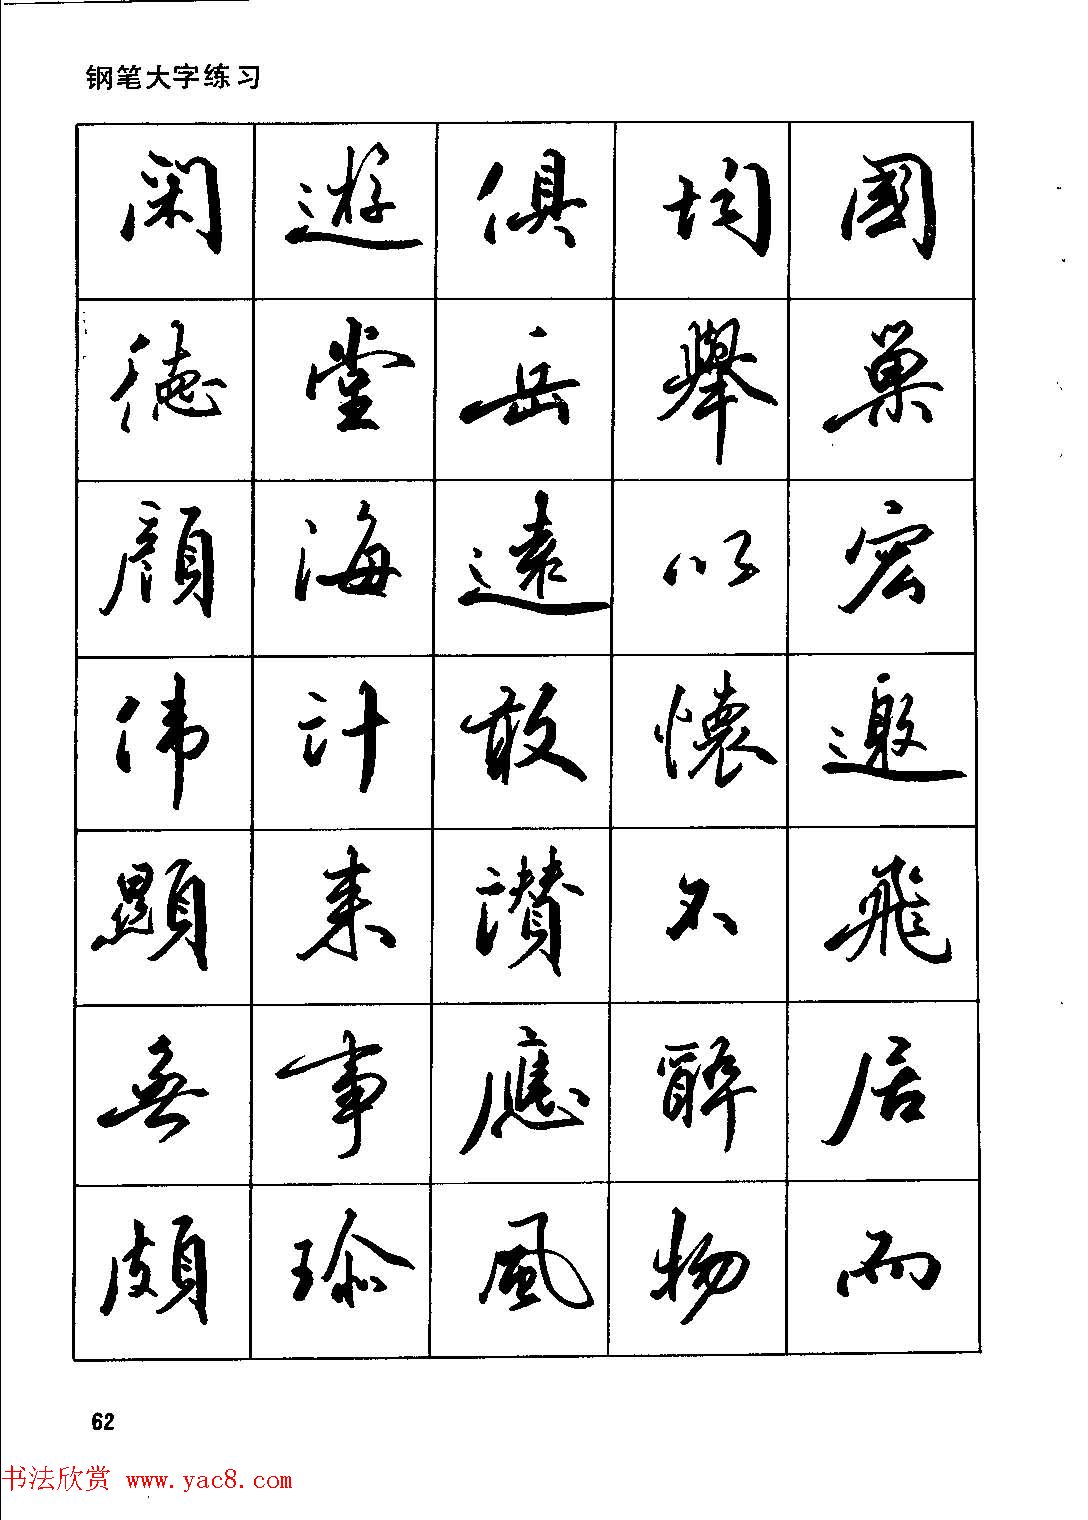 钢笔大字练习
闲遊俱均國
德堂岳舉巢
顏海遠以宏
伟計敢懷邀
顯来讚不飛
無事應醉居
頗珍風物而
62
书法欣赏 www.yac8.com